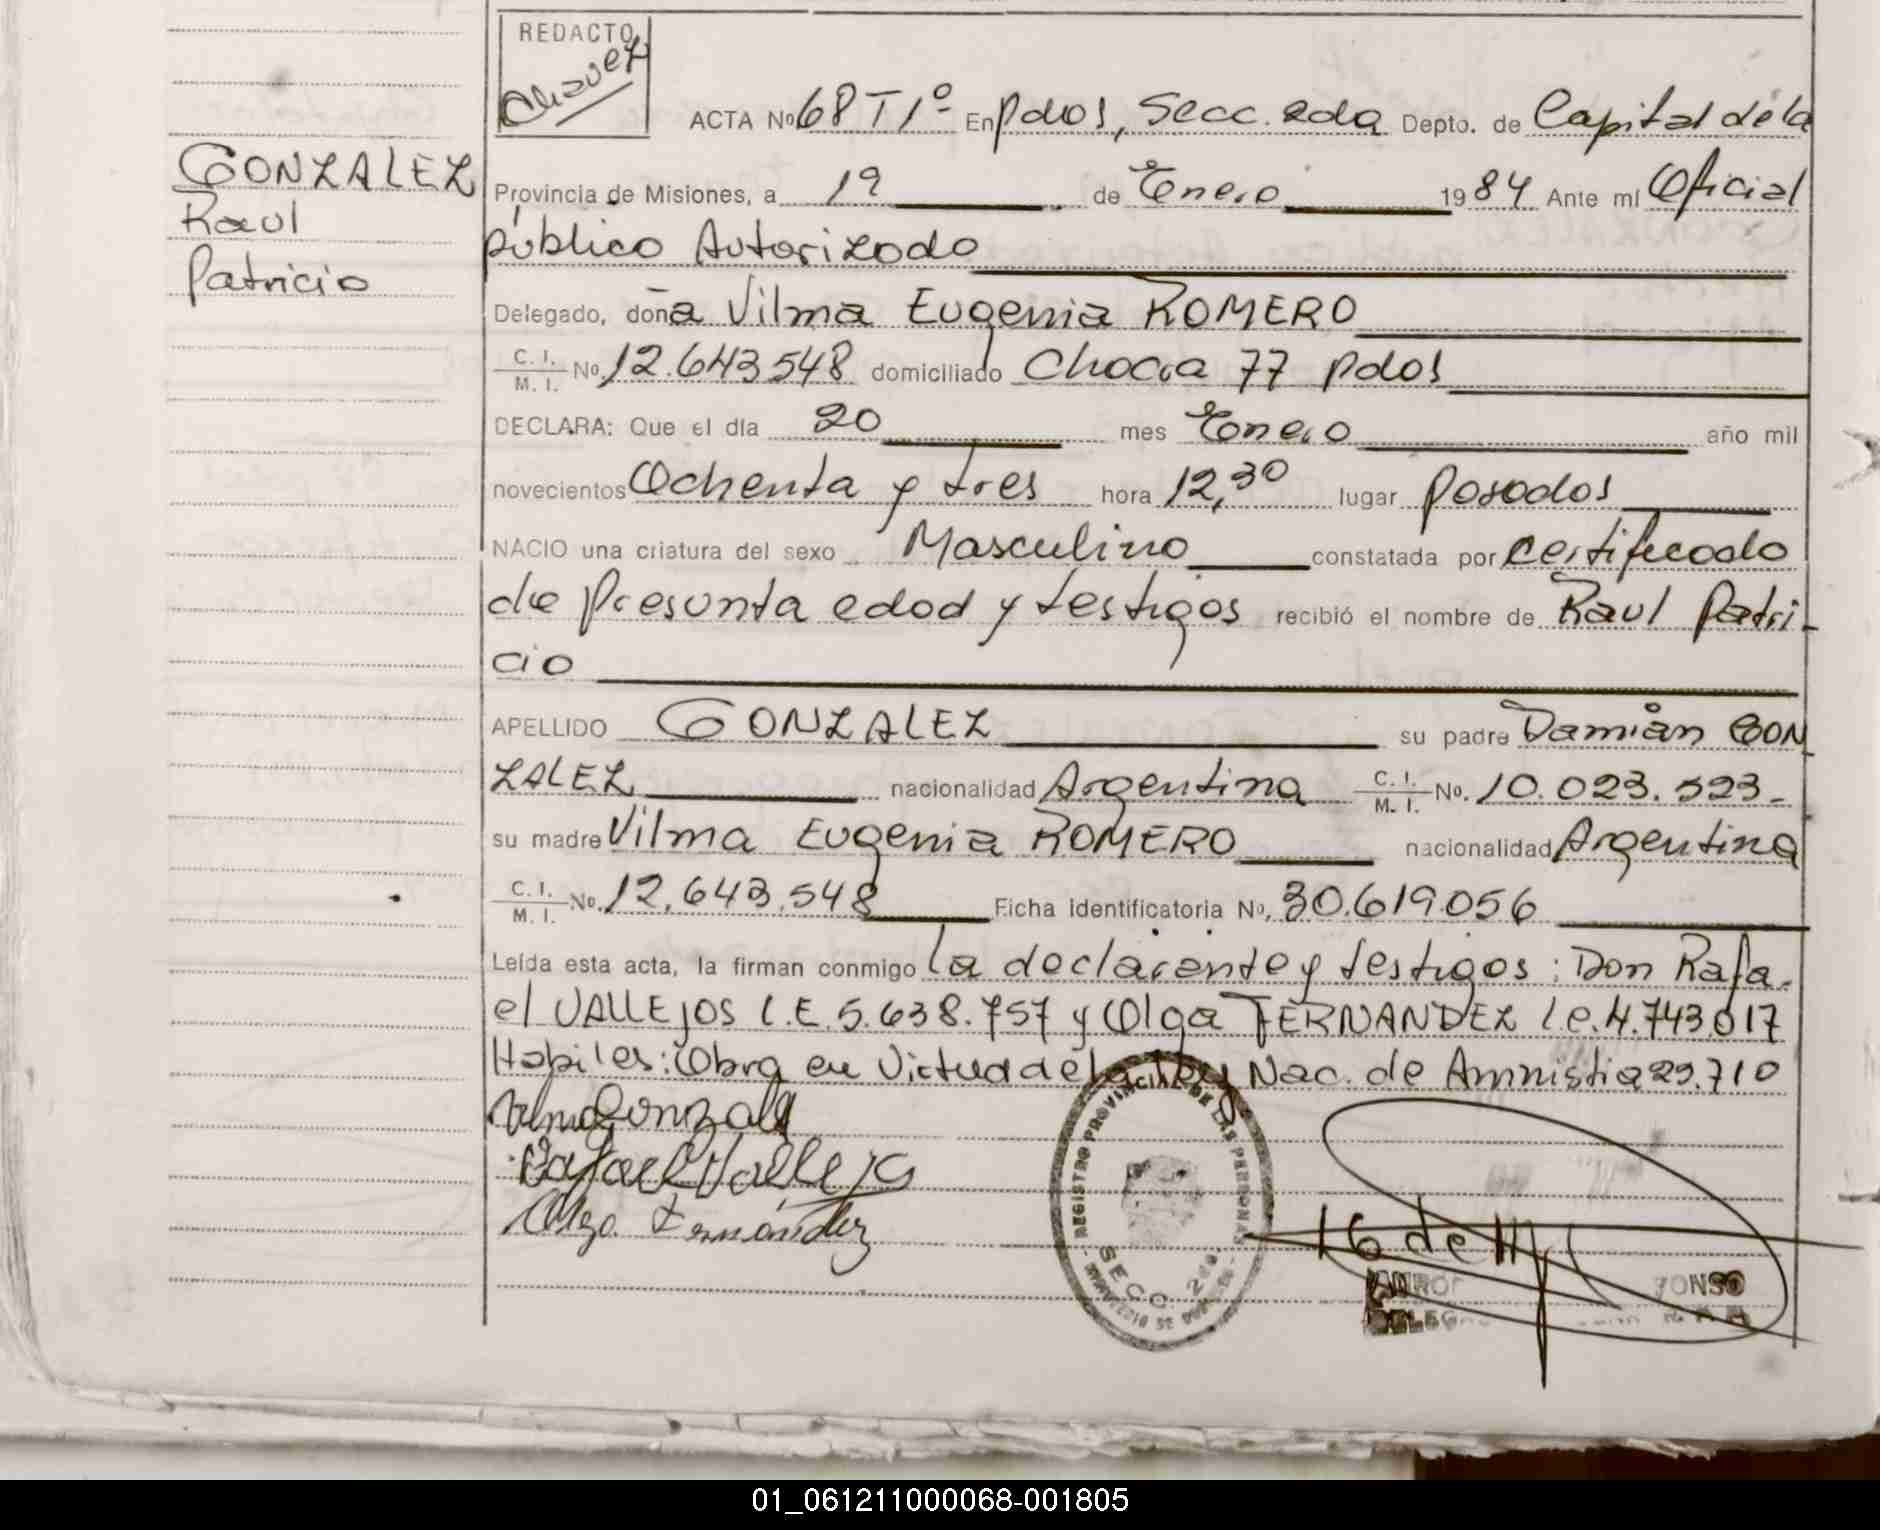 REDACTO
Chavez
ACTA No 68 T 1º En Pdas, Secc. 2da Depto. de Capital de la
GONZALEZ
Raul
Patricio
Provincia de Misiones, a 19 de Enero 1984 Ante mí Oficial
público Autorizado
Delegado, doña Vilma Eugenia ROMERO
C. I. M. I. No. 12.643548 domiciliado Chacra 77 Pdas
DECLARA: Que el día 20 mes Enero año mil
novecientos Ochenta y tres hora 12,30 lugar Posadas
NACIO una criatura del sexo Masculino constatada por certificado
de Presunta edad y testigos recibió el nombre de Raul Patri-
cio
APELLIDO GONZALEZ su padre Damián GON
ZALEZ nacionalidad Argentina C. I. M. I. No. 10.023.523-
su madre Vilma Eugenia ROMERO nacionalidad Argentina
C. I. M. I. No. 12.643.548 Ficha Identificatoria No. 30.619056
Leída esta acta, la firman conmigo la declarante y testigos: Don Rafa-
el VALLEJOS L.E. 5.638.757 y Olga FERNANDEZ l.c. 4.743.017
Habiles: Obra en Victud de la ley Nac. de Amnistia 22.710
Vilma Gonzalez
Rafael Vallejos
Olga Fernández
REGISTRO PROVINCIAL DE LAS PERSONAS
SECC. 2da
16 de
DELEG
01_061211000068-001805